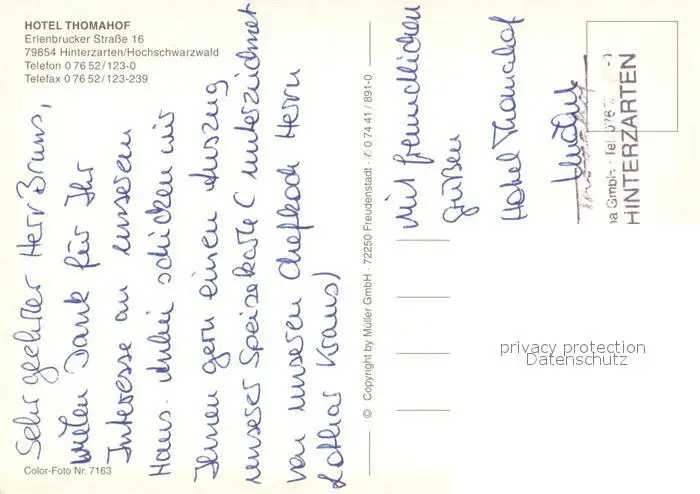 HOTEL THOMAHOF
Erlenbrucker Straße 16
79854 Hinterzarten/Hochschwarzwald
Telefon 0 76 52/123-0
Telefax 0 76 52/123-239
Sehr geehrter Herr Bruns,
vielen Dank für Ihr
Interesse an unserem
Haus. schicken wir
Ihnen gern einen Auszug
unserer Speisekarte (unterzeichnet
von unseren Chefkoch Herrn
Lothar Kraus)
Color-Foto Nr. 7163
© Copyright by Müller GmbH - 72250 Freudenstadt - ✆ 0 74 41 / 891-0
Mit freundlichen
Grüßen
Hotel Thomahof
GmbH · Tel. 076
HINTERZARTEN
privacy protection
Datenschutz